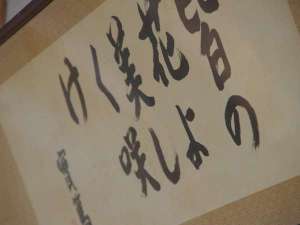 皆の
花よ
美し
く咲
け